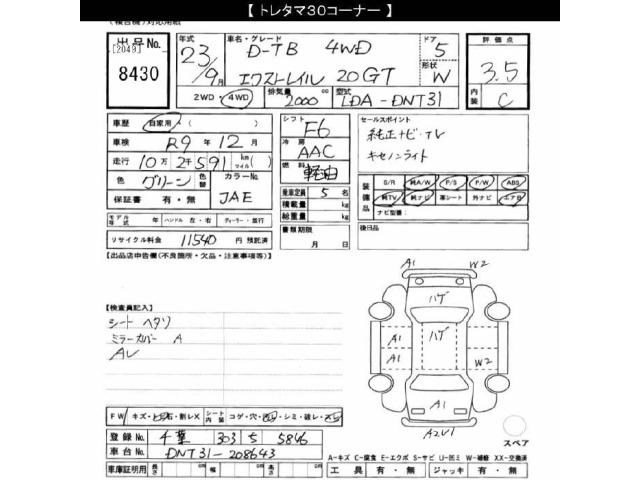 【 トレタマ30コーナー 】
(複合機)対応用紙
出品No. [2049] 8430
年式 23/9月
車名・グレード D-TB 4WD エクストレイル 20GT
ドア 5 形状 W
2WD・4WD 排気量 2000 cc 型式 LDA-DNT31
評価点 3.5
内装 C
車歴 自家用・( )
車検 R9年 12月
走行 10万 2千 591 km( ) マイル( )
色 グリーン 色替 カラーNo. JAE
保証書 有・無
シフト F6
冷房 AAC
燃料 軽油
乗車定員 5 名
積載量 kg
総重量 kg
セールスポイント
純正ナビ・TV
キセノンライト
装備品 S/R 純A/W P/S P/W ABS
純TV 純ナビ 革シート 外ナビ エアB
ナビ型番:
モデル年式 年 ハンドル 左・右 ディーラー・並行
書類期限 月 日
後日品
リサイクル料金 11540 円 預託済
【出品店申告欄(不良箇所・欠品・注意事項等)】
【検査員記入】
シート ヘタリ
ミラーカバー A
AL
A1 W2
ハゲ
ハゲ
A1
A1 W2
A1
A2U1
スペア
FW キズ・とび石・割レX シート内装 コゲ・穴・・シミ・破レ・
登録No. 千葉 303 ち 5846
車台No. DNT31-208643
A-キズ C-腐食 E-エクボ S-サビ U-凹ミ W-補修 XX-交換済
車庫証明用 長さ cm 幅 cm 高さ cm 工具 有・無 ジャッキ 有・無